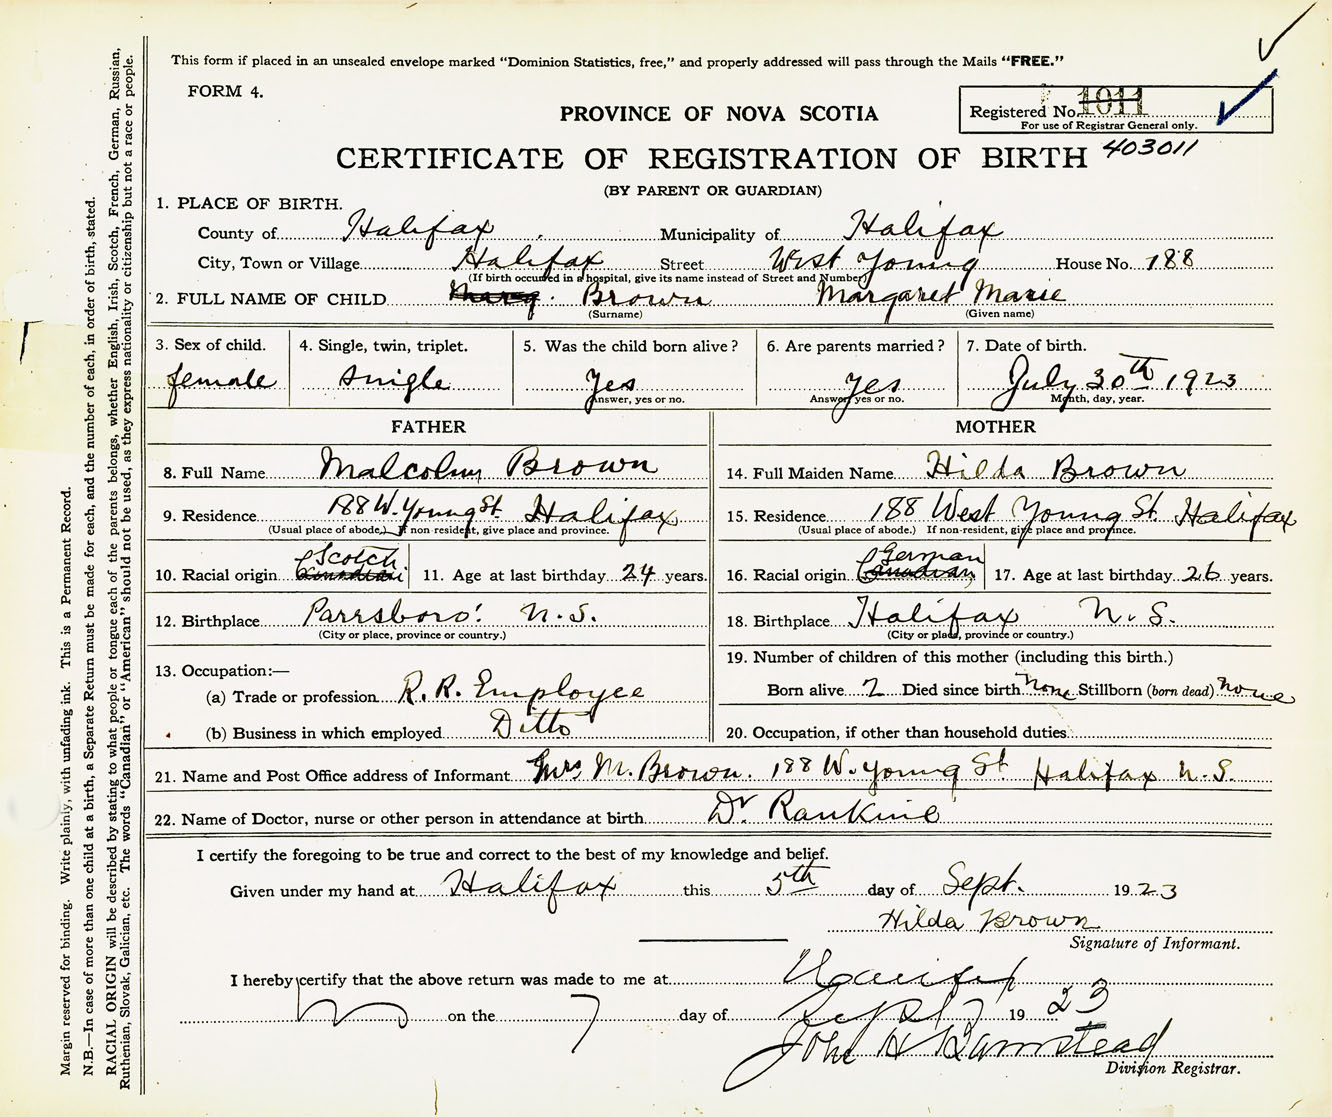 This form if placed in an unsealed envelope marked "Dominion Statistics, free," and properly addressed will pass through the Mails "FREE."
FORM 4.
Registered No. 1011
For use of Registrar General only.
PROVINCE OF NOVA SCOTIA
CERTIFICATE OF REGISTRATION OF BIRTH 403011
(BY PARENT OR GUARDIAN)
1. PLACE OF BIRTH.
County of Halifax Municipality of Halifax
City, Town or Village Halifax Street West Young House No. 188
(If birth occurred in a hospital, give its name instead of Street and Number)
2. FULL NAME OF CHILD Marg. Brown Margaret Marie
(Surname) (Given name)
3. Sex of child. 4. Single, twin, triplet. 5. Was the child born alive? 6. Are parents married? 7. Date of birth.
female single Yes yes July 30th 1923
Answer, yes or no. Answer, yes or no. Month, day, year.
FATHER MOTHER
8. Full Name Malcolm Brown 14. Full Maiden Name Hilda Brown
9. Residence 188 W. Young St. Halifax 15. Residence 188 West Young St. Halifax
(Usual place of abode.) If non-resident, give place and province. (Usual place of abode.) If non-resident, give place and province.
Scotch German
10. Racial origin Canadian 11. Age at last birthday 24 years. 16. Racial origin Canadian 17. Age at last birthday 26 years.
12. Birthplace Parrsboro' N.S. 18. Birthplace Halifax N.S.
(City or place, province or country.) (City or place, province or country.)
13. Occupation:— 19. Number of children of this mother (including this birth.)
(a) Trade or profession R.R. Employee Born alive 2 Died since birth None Stillborn (born dead) none
(b) Business in which employed Ditto 20. Occupation, if other than household duties
21. Name and Post Office address of Informant Mrs M. Brown. 188 W. Young St Halifax N.S.
22. Name of Doctor, nurse or other person in attendance at birth Dr. Rankine
I certify the foregoing to be true and correct to the best of my knowledge and belief.
Given under my hand at Halifax this 5th day of Sept. 1923
Hilda Brown
Signature of Informant.
I hereby certify that the above return was made to me at Halifax
on the 7 day of Sept 1923
John H Barnstead
Division Registrar.
Margin reserved for binding. Write plainly, with unfading ink. This is a Permanent Record.
N.B.—In case of more than one child at a birth, a Separate Return must be made for each, and the number of each, in order of birth, stated.
RACIAL ORIGIN will be described by stating to what people or tongue each of the parents belongs, whether English, Irish, Scotch, French, German, Russian,
Ruthenian, Slovak, Galician, etc. The words "Canadian" or "American" should not be used, as they express nationality or citizenship but not a race or people.